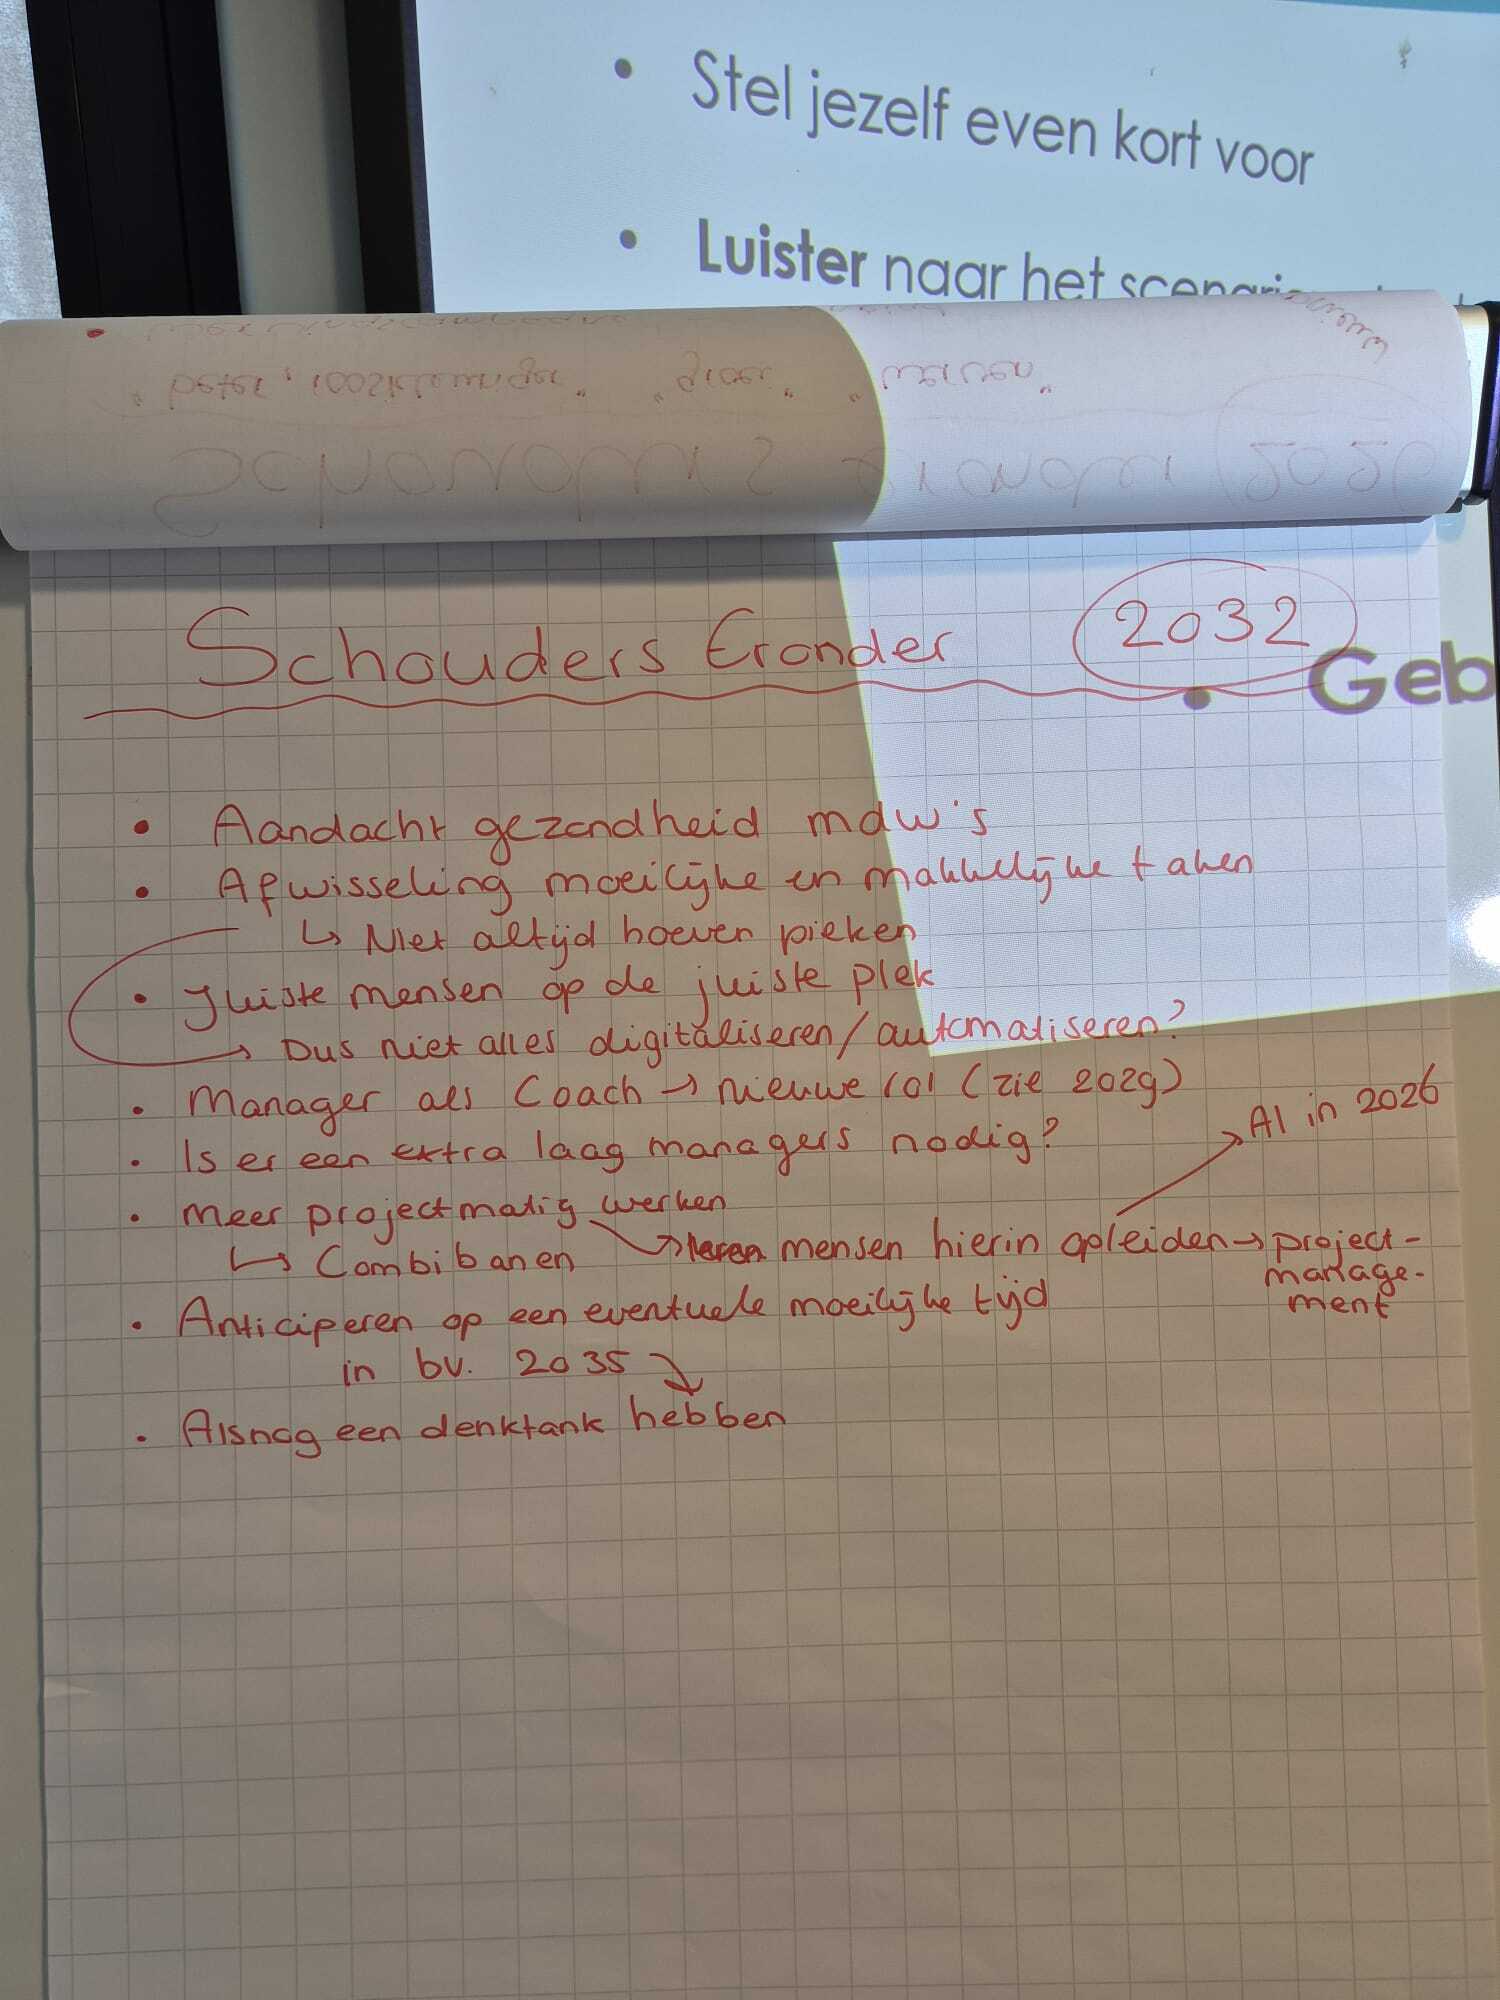 • Stel jezelf even kort voor
• Luister naar het scenario
Schouders Eronder 2032
• Geb
• Aandacht gezondheid mdw's
• Afwisseling moeilijke en makkelijke taken
↳ Niet altijd hoeven pieken
• Juiste mensen op de juiste plek
→ Dus niet alles digitaliseren/automatiseren?
• Manager als Coach → nieuwe rol (zie 2029)
→ AI in 2026
• Is er een extra laag managers nodig?
• Meer projectmatig werken
→ mensen hierin opleiden → project-
management
↳ Combibanen
• Anticiperen op een eventuele moeilijke tijd
in bv. 2035
• Alsnog een denktank hebben